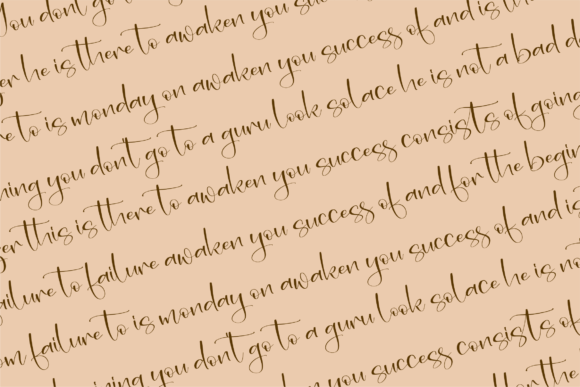 You dont go t
er he is there to awaken you suc
re to is monday on awaken you success of and is the
ning you don't go to a guru look solace he is not a bad d
er this is there to awaken you success consists of going
ailure to failure awaken you success of and for the begin
om failure to is monday on awaken you success of and is
ining you don't go to a guru look solace he is not
en you success consists of